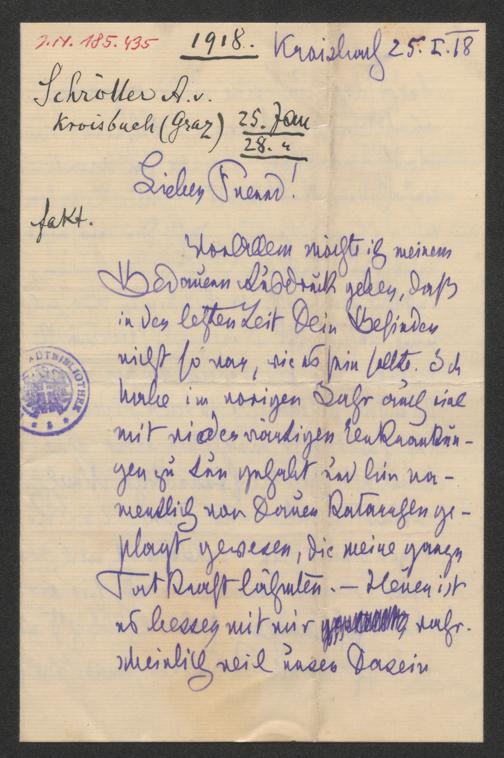 I.N. 185.435
1918.
Kroisbach 25. I. 18
Schrötter A. v.
Kroisbach (Graz) 25. Jan
28. "
Lieber Freund!
fakt.
Vor Allem möchte ich meinem
Bedauern Ausdruck geben, daß
in der letzten Zeit Dein Befinden
nicht so war, wie es sein sollte. Ich
habe im vorigen Jahr auch viel
mit widerwärtigen Erkrankun-
gen zu tun gehabt und bin na-
mentlich von Katarrhen ge-
plagt gewesen, die meine ganze
Tatkraft lähmten. – Heuer ist
es besser mit mir wahr-
scheinlich weil unser Dasein
STADTBIBLIOTHEK